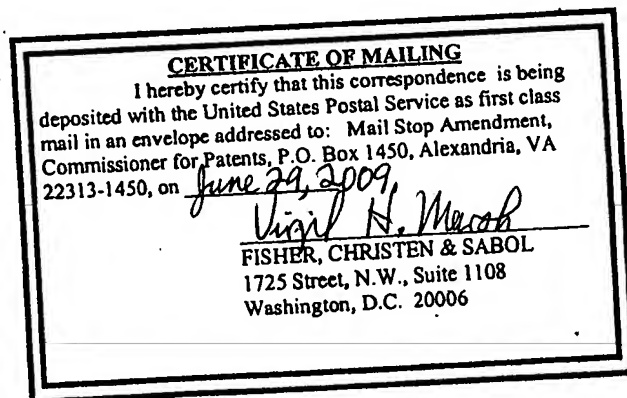 CERTIFICATE OF MAILING
I hereby certify that this correspondence is being
deposited with the United States Postal Service as first class
mail in an envelope addressed to: Mail Stop Amendment,
Commissioner for Patents, P.O. Box 1450, Alexandria, VA
22313-1450, on June 29, 2009.
Virgil H. Marsh
FISHER, CHRISTEN & SABOL
1725 Street, N.W., Suite 1108
Washington, D.C. 20006